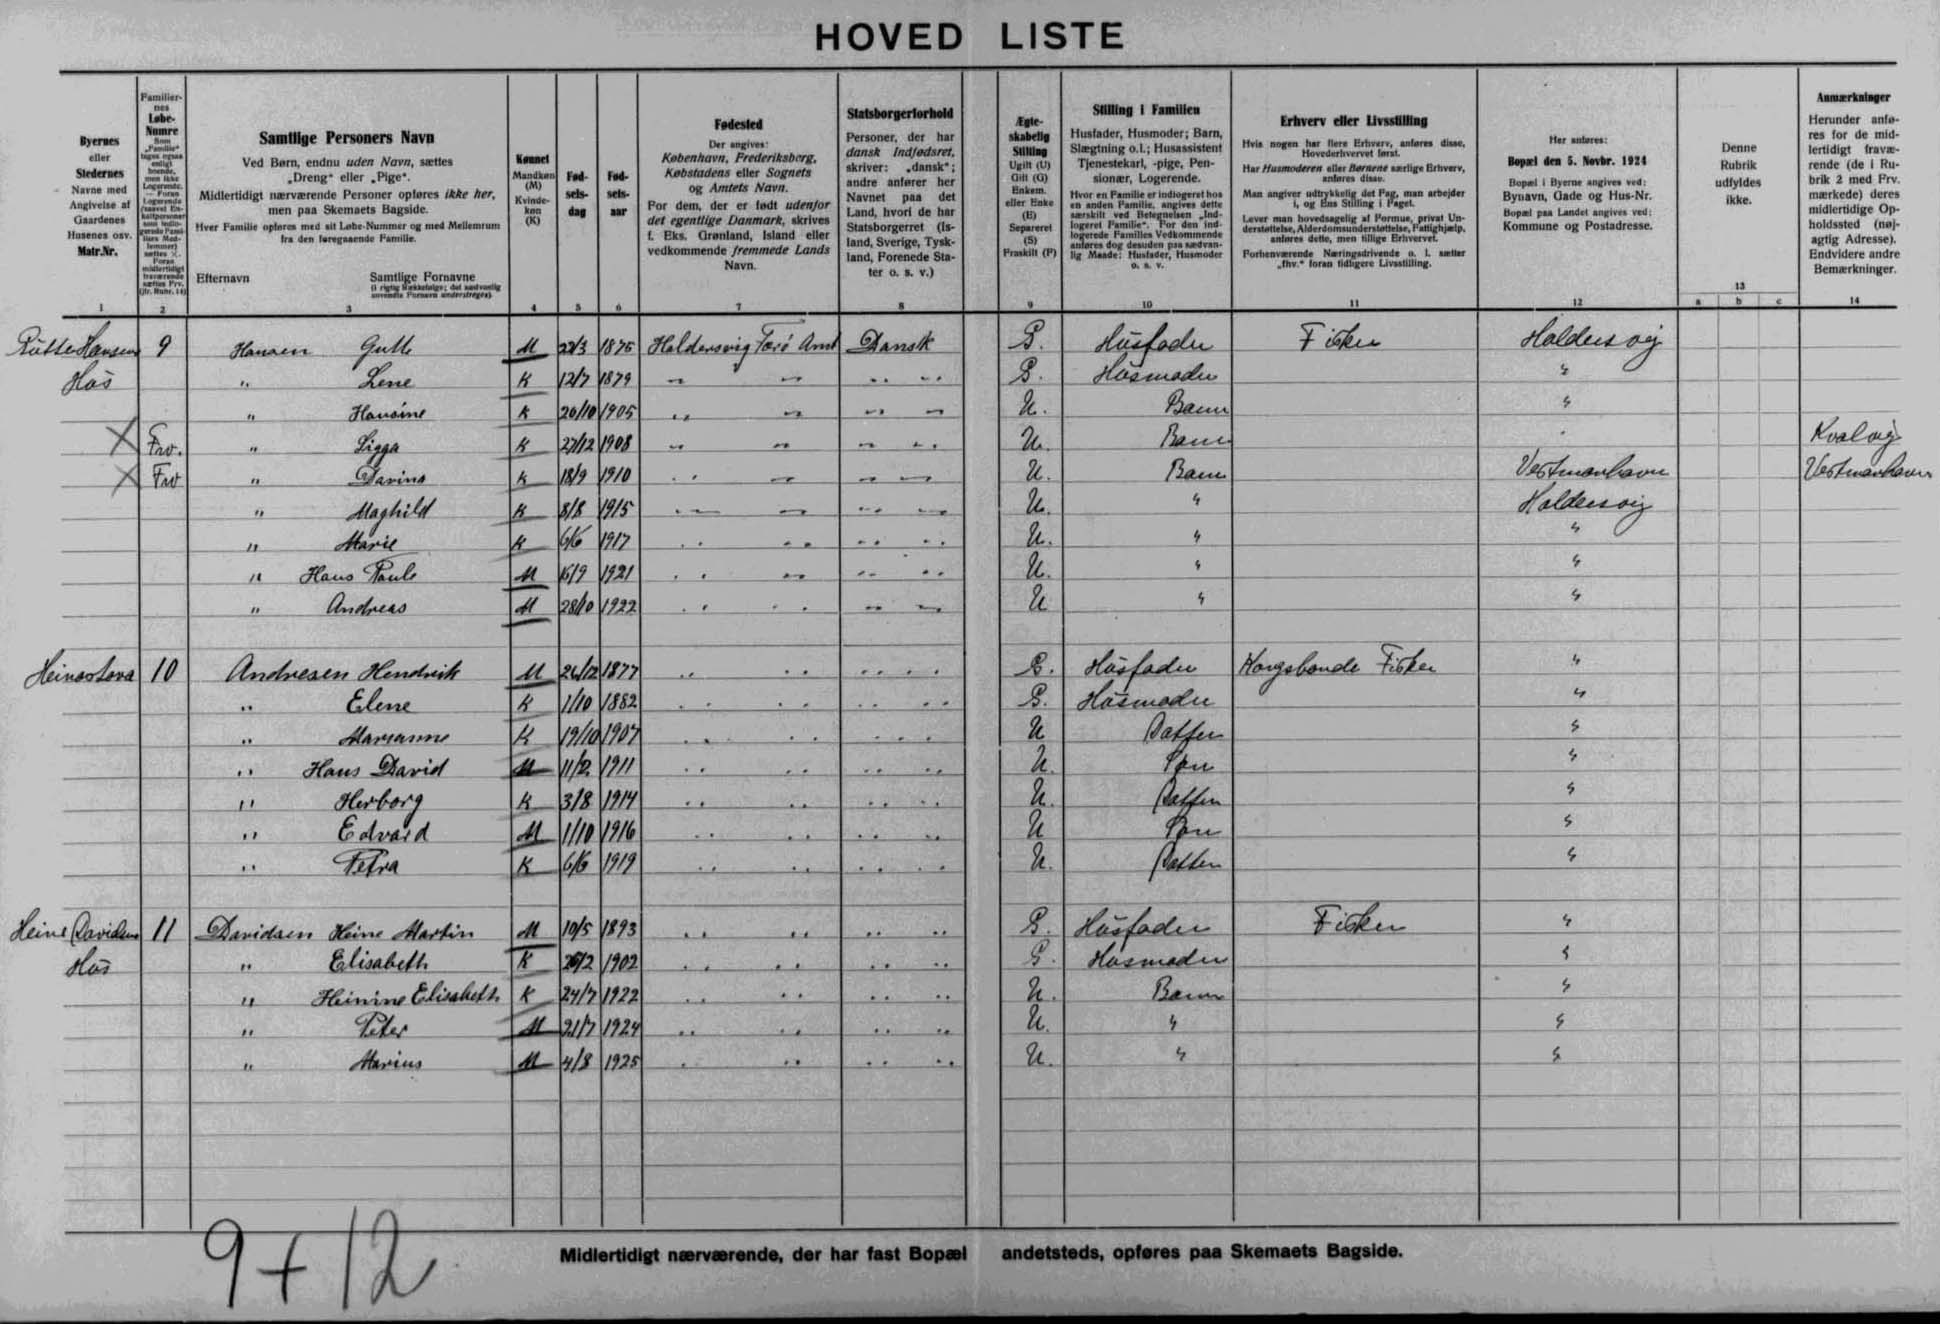 HOVED LISTE
Byernes
eller
Stedernes
Navne med
Angivelse af
Gaardenes
Husenes osv.
Matr.Nr.
1
Familier-
nes
Løbe-
Numre
Som
„Familie“
tages ogsaa
enligt
boende,
men ikke
Logerende.
2
Samtlige Personers Navn
Ved Børn, endnu uden Navn, sættes
„Dreng“ eller „Pige“.
Midlertidigt nærværende Personer opføres ikke her,
men paa Skemaets Bagside.
Hver Familie opføres med sit Løbe-Nummer og med Mellemrum
fra den foregaaende Familie.
Efternavn
Samtlige Fornavne
(i rigtig Rækkefølge; det sædvanlig
anvendte Fornavn understreges).
3
Kønnet
Mandkøn
(M)
Kvinde-
køn
(K)
4
Fød-
sels-
dag
5
Fød-
sels-
aar
6
Fødested
Der angives:
København, Frederiksberg,
Købstadens eller Sognets
og Amtets Navn.
For dem, der er født udenfor
det egentlige Danmark, skrives
f. Eks. Grønland, Island eller
vedkommende fremmede Lands
Navn.
7
Statsborgerforhold
Personer, der har
dansk Indfødsret,
skriver: „dansk“;
andre anfører her
Navnet paa det
Land, hvori de har
Statsborgerret (Is-
land, Sverige, Tysk-
land, Forenede Sta-
ter o. s. v.)
8
Ægte-
skabelig
Stilling
Ugift (U)
Gift (G)
Enkem.
eller Enke
(E)
Separeret
(S)
Fraskilt (F)
9
Stilling i Familien
Husfader, Husmoder; Barn,
Slægtning o.l.; Husassistent
Tjenestekarl, -pige, Pen-
sionær, Logerende.
Hvor en Familie er indlogeret hos
en anden Familie, angives dette
særskilt ved Betegnelsen „Ind-
logeret Familie“. For den ind-
logerede Families Vedkommende
anføres dog desuden paa sædvan-
lig Maade: Husfader, Husmoder
o. s. v.
10
Erhverv eller Livsstilling
Hvis nogen har flere Erhverv, anføres disse,
Hovederhvervet først.
Har Husmoderen eller Børnene særlige Erhverv,
anføres disse.
Man angiver udtrykkelig det Fag, man arbejder
i, og Ens Stilling i Faget.
Lever man hovedsagelig af Formue, privat Un-
derstøttelse, Alderdomsunderstøttelse, Fattighjælp,
anføres dette, men tillige Erhvervet.
Forhenværende Næringsdrivende o. l. sætter
„fhv.“ foran tidligere Livsstilling.
11
Her anføres:
Bopæl den 5. Novbr. 1924
Bopæl i Byerne angives ved:
Bynavn, Gade og Hus-Nr.
Bopæl paa Landet angives ved:
Kommune og Postadresse.
12
Denne
Rubrik
udfyldes
ikke.
13
a b c
Anmærkninger
Herunder anfø-
res for de mid-
lertidigt fravæ-
rende (de i Ru-
brik 2 med Frv.
mærkede) deres
midlertidige Op-
holdssted (nøj-
agtig Adresse).
Endvidere andre
Bemærkninger.
14
Hansens 9 Hansen Gutte M 1875 Haldersvig Færø Amt Dansk G. Husfader Fisker Haldersvig
Hus " Lene K 12/7 1879 " " " " G. Husmoder "
" Hansine K 20/10 1905 " " " " U. Barn "
X Frv. " Sigga K 27/12 1908 " " " " U. Barn " Kvalvig
X Frv " Davina K 18/9 1910 " " " " U. Barn Vestmanhavn Vestmanhavn
" Maghild K 8/8 1915 " " " " U. " Haldersvig
" Marie K 6/6 1917 " " " " U. " "
" Hans Paule M 15/9 1921 " " " " U. " "
" Andreas M 28/10 1922 " " " " U " "
Heinastova 10 Andresen Hendrik M 26/12 1877 " " " " G. Husfader Kongsbonde Fisker "
" Elene K 1/10 1882 " " " " G. Husmoder "
" Marianne K 19/10 1907 " " " " U Datter "
" Hans David M 11/2 1911 " " " " U. Søn "
" Herborg K 3/8 1914 " " " " U. Datter "
" Edvard M 1/10 1916 " " " " U Søn "
" Petra K 6/6 1919 " " " " U. Datter "
Heine Davidsens 11 Davidsen Heine Martin M 10/5 1893 " " " " G. Husfader Fisker "
Hus " Elisabeth K 1902 " " " " G. Husmoder "
" Heinine Elisabeth K 24/7 1922 " " " " U. Barn "
" Peter M 21/7 1924 " " " " U. " "
" Marius M 4/8 1925 " " " " U. " "
9 + 12
Midlertidigt nærværende, der har fast Bopæl andetsteds, opføres paa Skemaets Bagside.